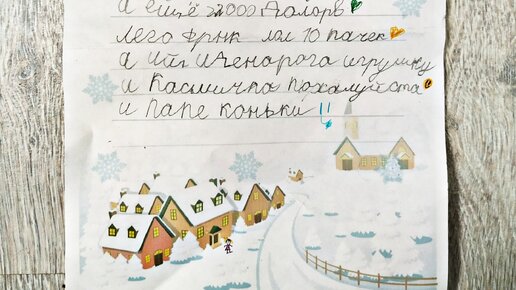 а ещё 22000 Доларв
лего Френк лол 10 пачек
а ипт Щенорога игрушку
и Касмичка пожалуйста
и папе коньки !!